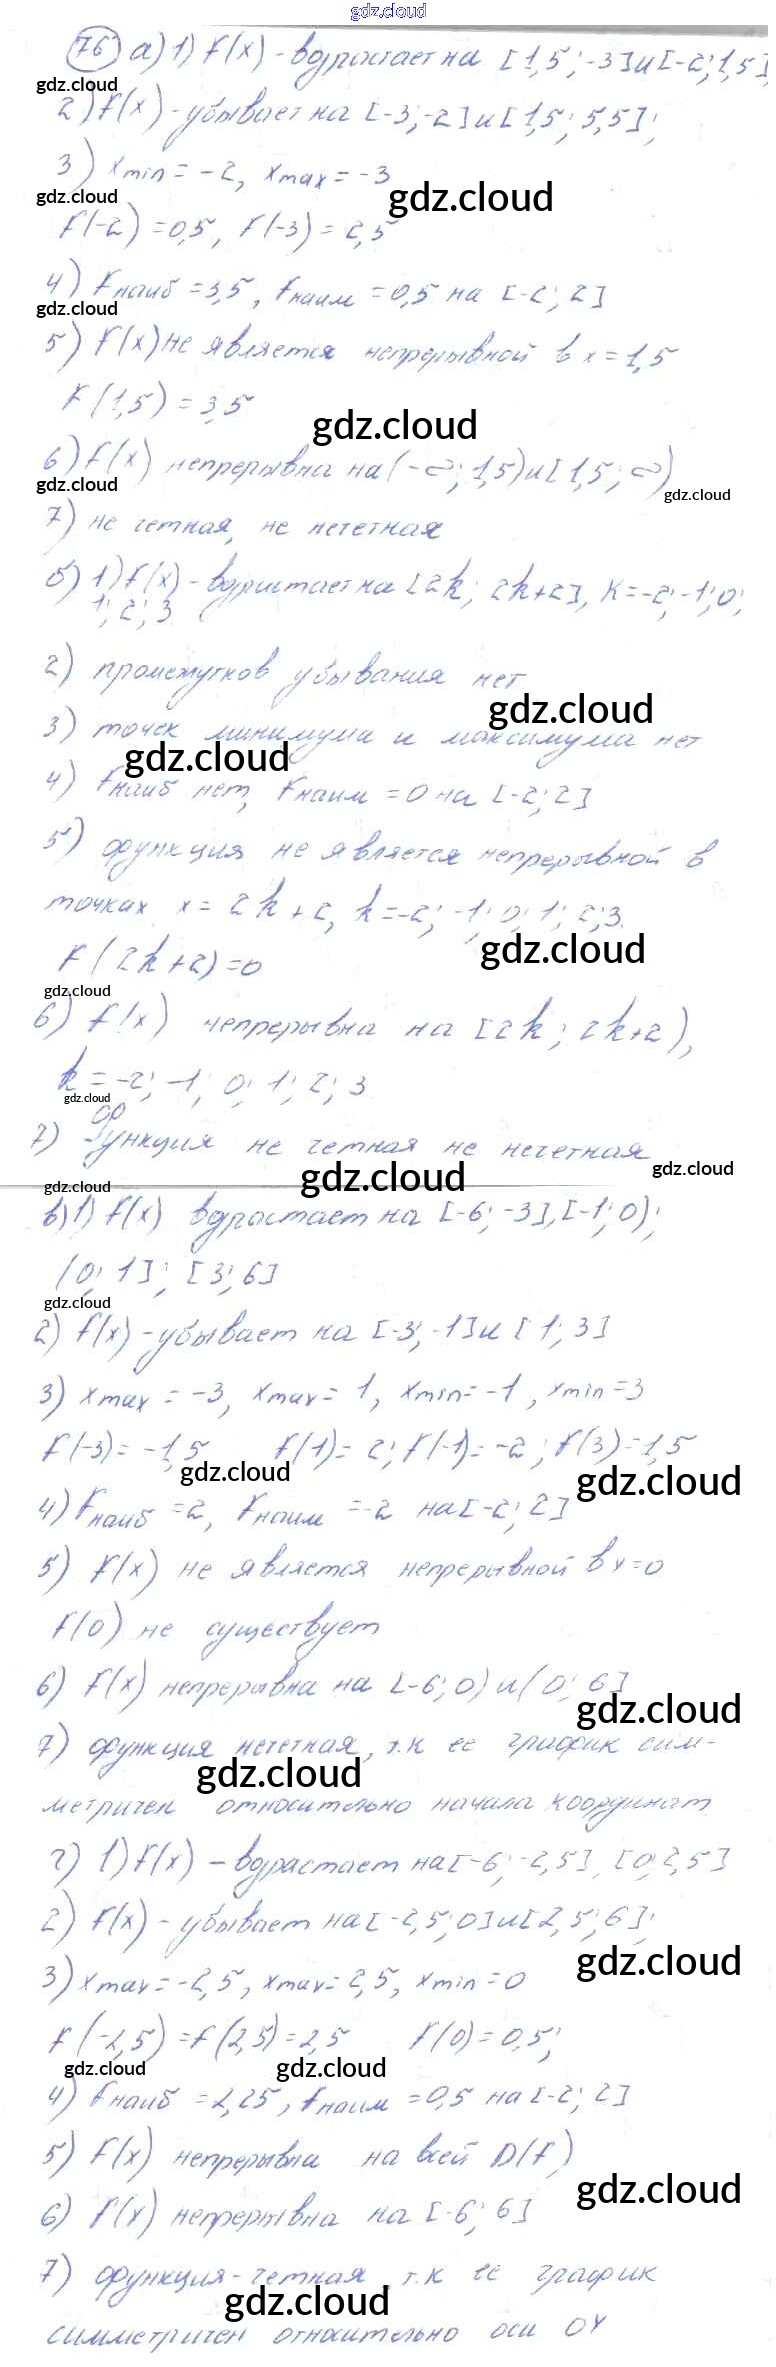 gdz.cloud
76 а) 1) f(x) - возрастает на [1,5; -3] и [-2; 1,5],
gdz.cloud
2) f(x) - убывает на [-3; -2] и [1,5; 5,5];
3) xmin = -2, xmax = -3
gdz.cloud gdz.cloud
f(-2) = 0,5, f(-3) = 2,5
4) fнаиб = 3,5, fнаим = 0,5 на [-2; 2]
gdz.cloud
5) f(x) не является непрерывной в x = 1,5
f(1,5) = 3,5
gdz.cloud
6) f(x) непрерывна на (-∞; 1,5) и [1,5; ∞)
gdz.cloud gdz.cloud
7) не четная, не нечетная
б) 1) f(x) - возрастает на [2k; 2k+2], k = -2; -1; 0;
1; 2; 3
2) промежутков убывания нет
gdz.cloud
3) точек минимума и максимума нет
gdz.cloud
4) fнаиб нет, fнаим = 0 на [-2; 2]
5) функция не является непрерывной в
точках x = 2k+2, k = -2; -1; 0; 1; 2; 3.
gdz.cloud
f(2k+2) = 0
gdz.cloud
6) f(x) непрерывна на [2k; 2k+2),
k = -2; -1; 0; 1; 2; 3
gdz.cloud
7) функция не четная не нечетная
gdz.cloud gdz.cloud gdz.cloud
в) 1) f(x) возрастает на [-6; -3], [-1; 0);
(0; 1]; [3; 6]
gdz.cloud
2) f(x) - убывает на [-3; -1] и [1; 3]
3) xmax = -3, xmax = 1, xmin = -1, xmin = 3
f(-3) = -1,5 f(1) = 2; f(-1) = -2; f(3) = 1,5
gdz.cloud gdz.cloud
4) fнаиб = 2, fнаим = -2 на [-2; 2]
5) f(x) не является непрерывной в x = 0
f(0) не существует
6) f(x) непрерывна на [-6; 0) и (0; 6]
gdz.cloud
7) функция нечетная, т.к ее график сим-
gdz.cloud
метричен относительно начала координат
г) 1) f(x) - возрастает на [-6; -2,5], [0; 2,5]
2) f(x) - убывает на [-2,5; 0] и [2,5; 6];
gdz.cloud
3) xmax = -2,5, xmax = 2,5, xmin = 0
f(-2,5) = f(2,5) = 2,5 f(0) = 0,5;
gdz.cloud gdz.cloud
4) fнаиб = 2,25, fнаим = 0,5 на [-2; 2]
5) f(x) непрерывна на всей D(f)
gdz.cloud
6) f(x) непрерывна на [-6; 6]
7) функция - четная, т.к ее график
gdz.cloud
симметричен относительно оси OY